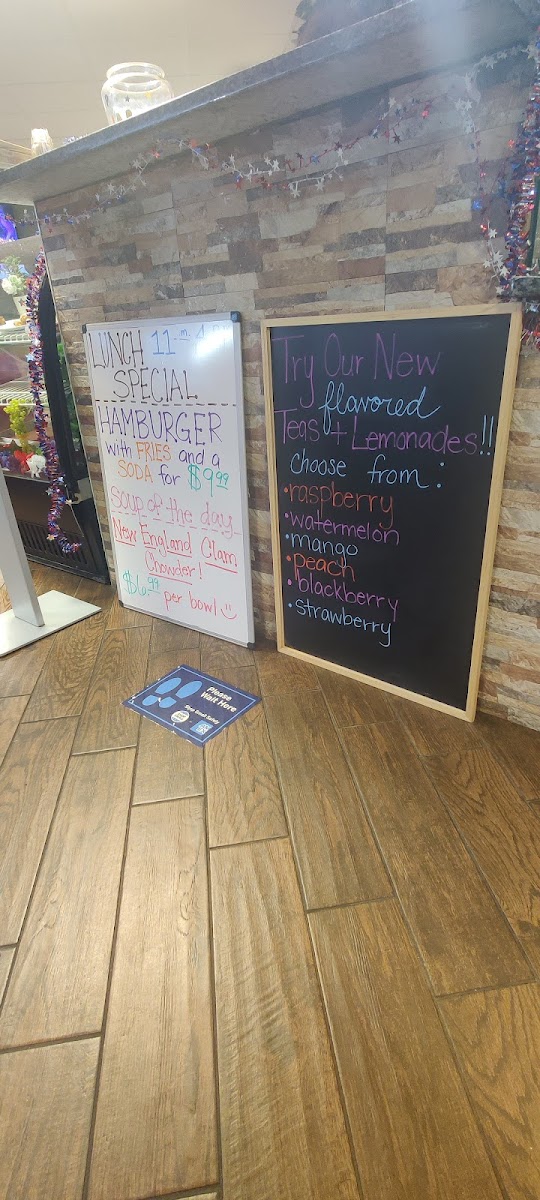 LUNCH 11am-4pm
SPECIAL
HAMBURGER
with FRIES and a
SODA for $9.99
Soup of the day
New England Clam
Chowder!
$6.99 per bowl
Try Our New
flavored
Teas + Lemonades!!
choose from:
•raspberry
•watermelon
•mango
•peach
•blackberry
•strawberry
Please
Wait Here